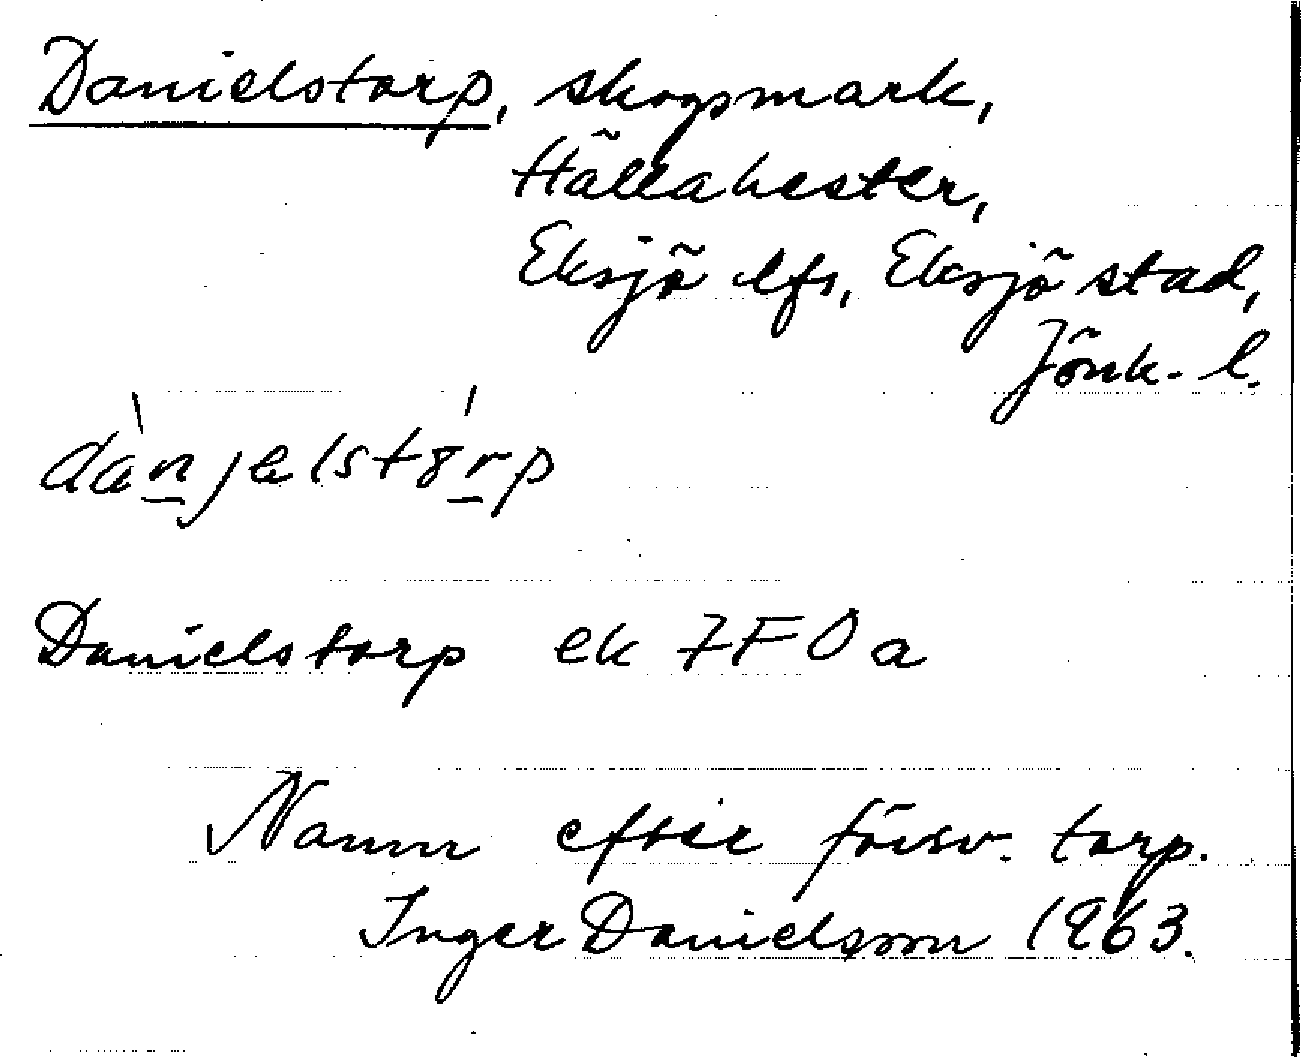 Danielstorp, skogsmark,
Hällahester,
Eksjö lfs, Eksjö stad,
Jönk. l.
dànjelstórp
Danielstorp ek 7F0a
Namn efter försv. torp.
Inger Danielsson 1963.